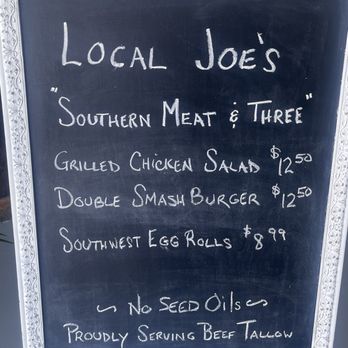 LOCAL JOE'S
"SOUTHERN MEAT & THREE"
GRILLED CHICKEN SALAD $12.50
DOUBLE SMASH BURGER $12.50
SOUTHWEST EGG ROLLS $8.99
~ NO SEED OILS ~
PROUDLY SERVING BEEF TALLOW